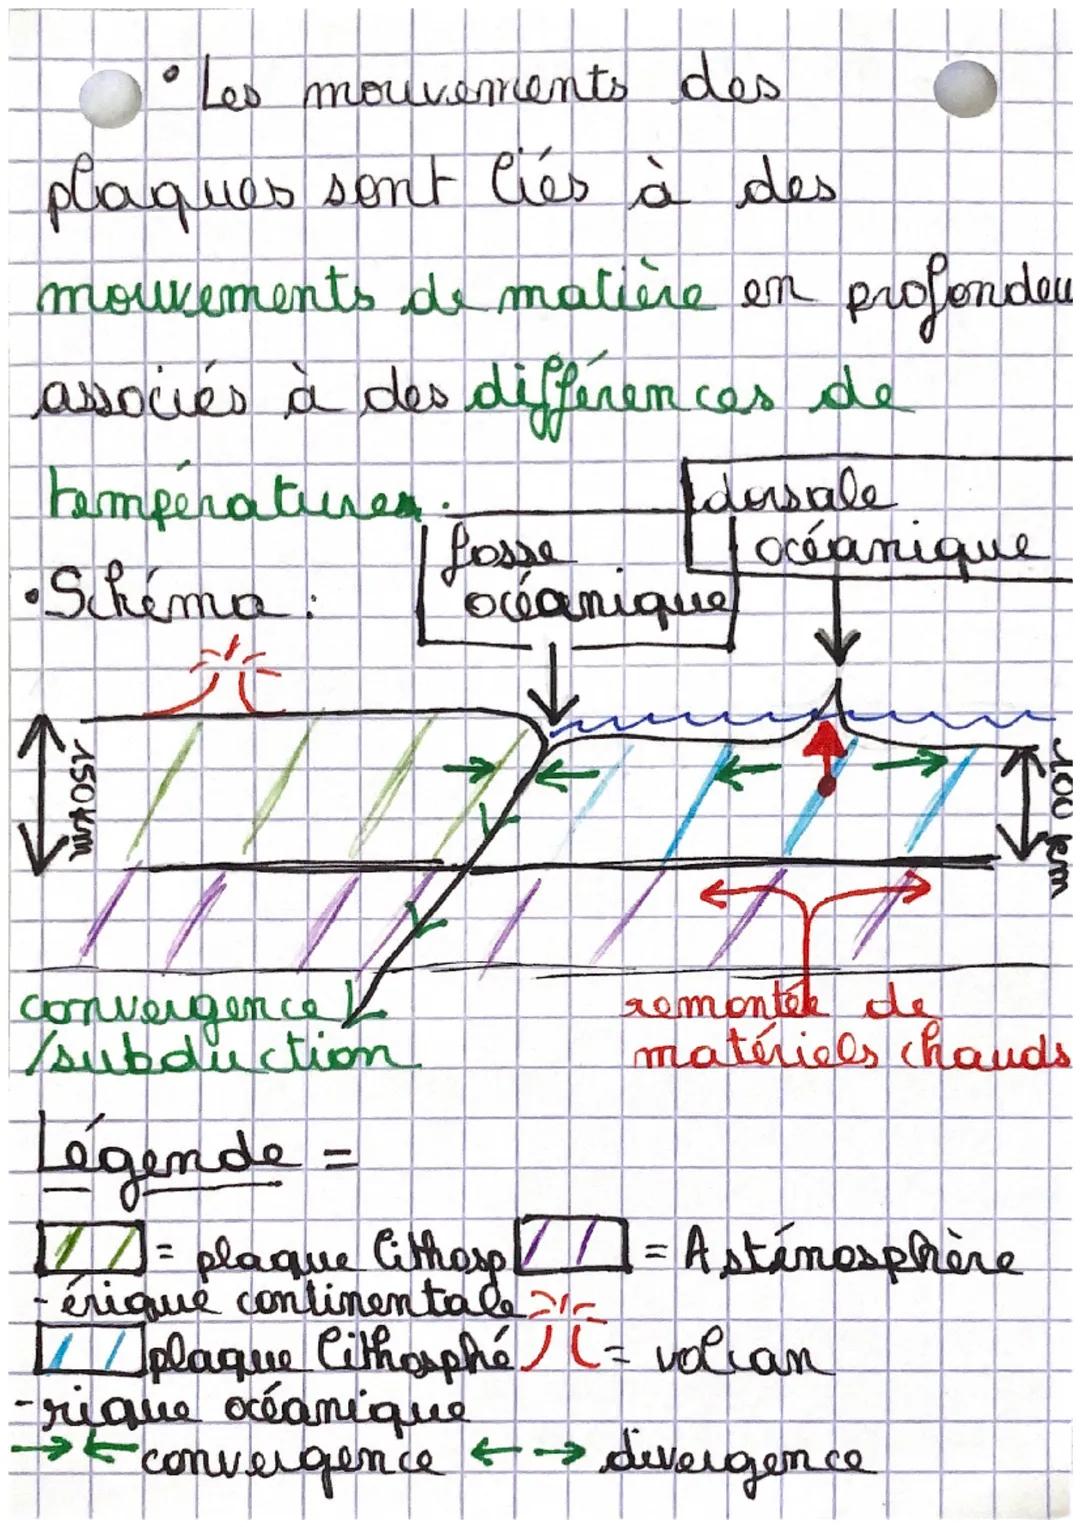 • Les mouvements des
plaques sont liés à des
mouvements de matière en profondeu
associés à des différences de
températures.
dorsale
océanique
fosse
océanique
• Schéma :
150 km
100 km
convergence
/subduction
remontée de
matériels chauds
Légende =
= plaque lithosp
-érique continentale
= Asténosphère
plaque lithosphé
-rique océanique
= volcan
convergence
divergence